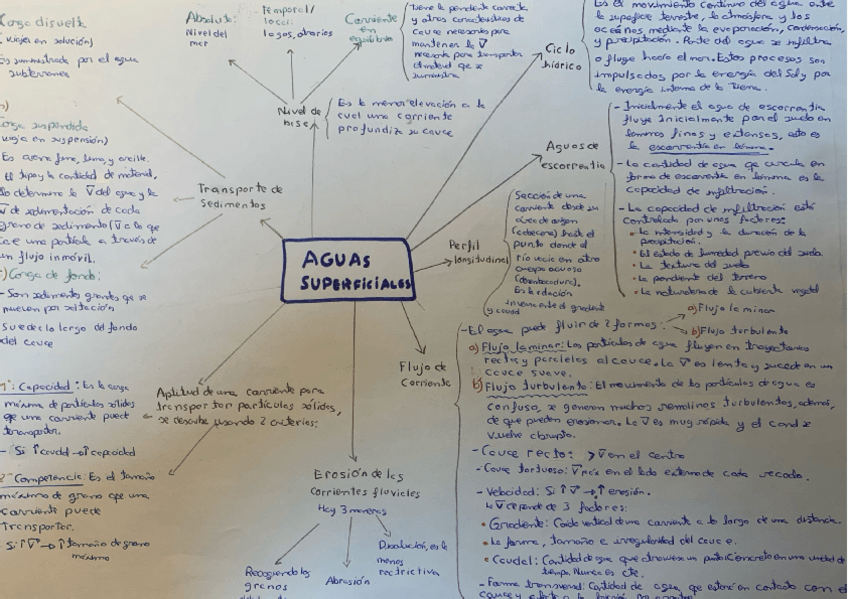 Carga disuelta
(viaja en solución)
Es suministrada por el agua
subterránea
Absoluto:
Nivel del
mar
Temporal/
local:
lagos, otarios
Corriente
en
equilibrio
Tiene la pendiente correcta
y otras características de
cauce necesarias para
mantener la V̅
necesaria para transportar
el material que se
suministra
Nivel de
base
Es la menor elevación a la
cual una corriente
profundiza su cauce
Ciclo
hídrico
Es el movimiento continuo del agua entre
la superficie terrestre, la atmósfera y los
océanos, mediante la evaporación, condensación,
y precipitación. Parte del agua se infiltra
o fluye hacia el mar. Estos procesos son
impulsados por la energía del Sol y por
la energía interna de la Tierra.
Aguas de
escorrentía
- Inicialmente el agua de escorrentía
fluye inicialmente por el suelo en
láminas finas y extensas, esto es
la escorrentía en lámina.
- La cantidad de agua que circula en
forma de escorrentía en lámina es la
capacidad de infiltración.
- La capacidad de infiltración está
controlada por unos factores:
• La intensidad y la duración de la
precipitación.
• El estado de humedad previo del suelo.
• La textura del suelo
• La pendiente del terreno
• La naturaleza de la cubierta vegetal
b)
Carga suspendida
(viaja en suspensión)
Es arena fina, limo, y arcilla.
El tipo y la cantidad de material,
lo determina la V̅ del agua y la
V̅ de sedimentación de cada
grano de sedimento (V̅ a la que
cae una partícula a través de
un flujo inmóvil.
c) Carga de fondo:
- Son sedimentos grandes que se
mueven por saltación
Sucede a lo largo del fondo
del cauce
Transporte de
sedimentos
AGUAS
SUPERFICIALES
Perfil
longitudinal
Sección de una
corriente desde su
área de origen
(cabecera) hasta el
punto donde el
río vacía en otro
cuerpo acuoso
(desembocadura).
Es la relación
inversa entre el gradiente
y caudal
Flujo de
Corriente
- El agua puede fluir de 2 formas:
a) Flujo laminar
b) Flujo turbulento
a) Flujo laminar: Las partículas de agua fluyen en trayectorias
rectas y paralelas al cauce. La V̅ es lenta y sucede en un
cauce suave.
b) Flujo turbulento: El movimiento de las partículas de agua es
confuso, se generan muchos remolinos turbulentos, además,
de que pueden erosionar. La V̅ es muy rápida y el canal se
vuelve abrupto.
- Cauce recto: > V̅ en el centro
- Cauce tortuoso: V̅ máx en el lado externo de cada recodo.
- Velocidad: Si ↑V̅ → ↑ erosión.
La V̅ depende de 3 factores:
• Gradiente: Caída vertical de una corriente a lo largo de una distancia.
• La forma, tamaño e irregularidad del cauce.
• Caudal: Cantidad de agua que atraviesa un punto concreto en una unidad de
tiempo. Nunca es cte.
- Forma transversal: Cantidad de agua, que estará en contacto con el
cauce y
1ª: Capacidad: Es la carga
máxima de partículas sólidas
que una corriente puede
transportar.
- Si ↑caudal → ↑capacidad
2ª Competencia: Es el tamaño
máximo de grano que una
corriente puede
transportar.
- Si ↑V̅ → ↑tamaño de grano
máximo
Aptitud de una corriente para
transportar partículas sólidas,
se describe usando 2 criterios:
Erosión de las
corrientes fluviales
Hay 3 maneras
Recogiendo los
granos
Abrasión
Disolución, es la
menos
restrictiva